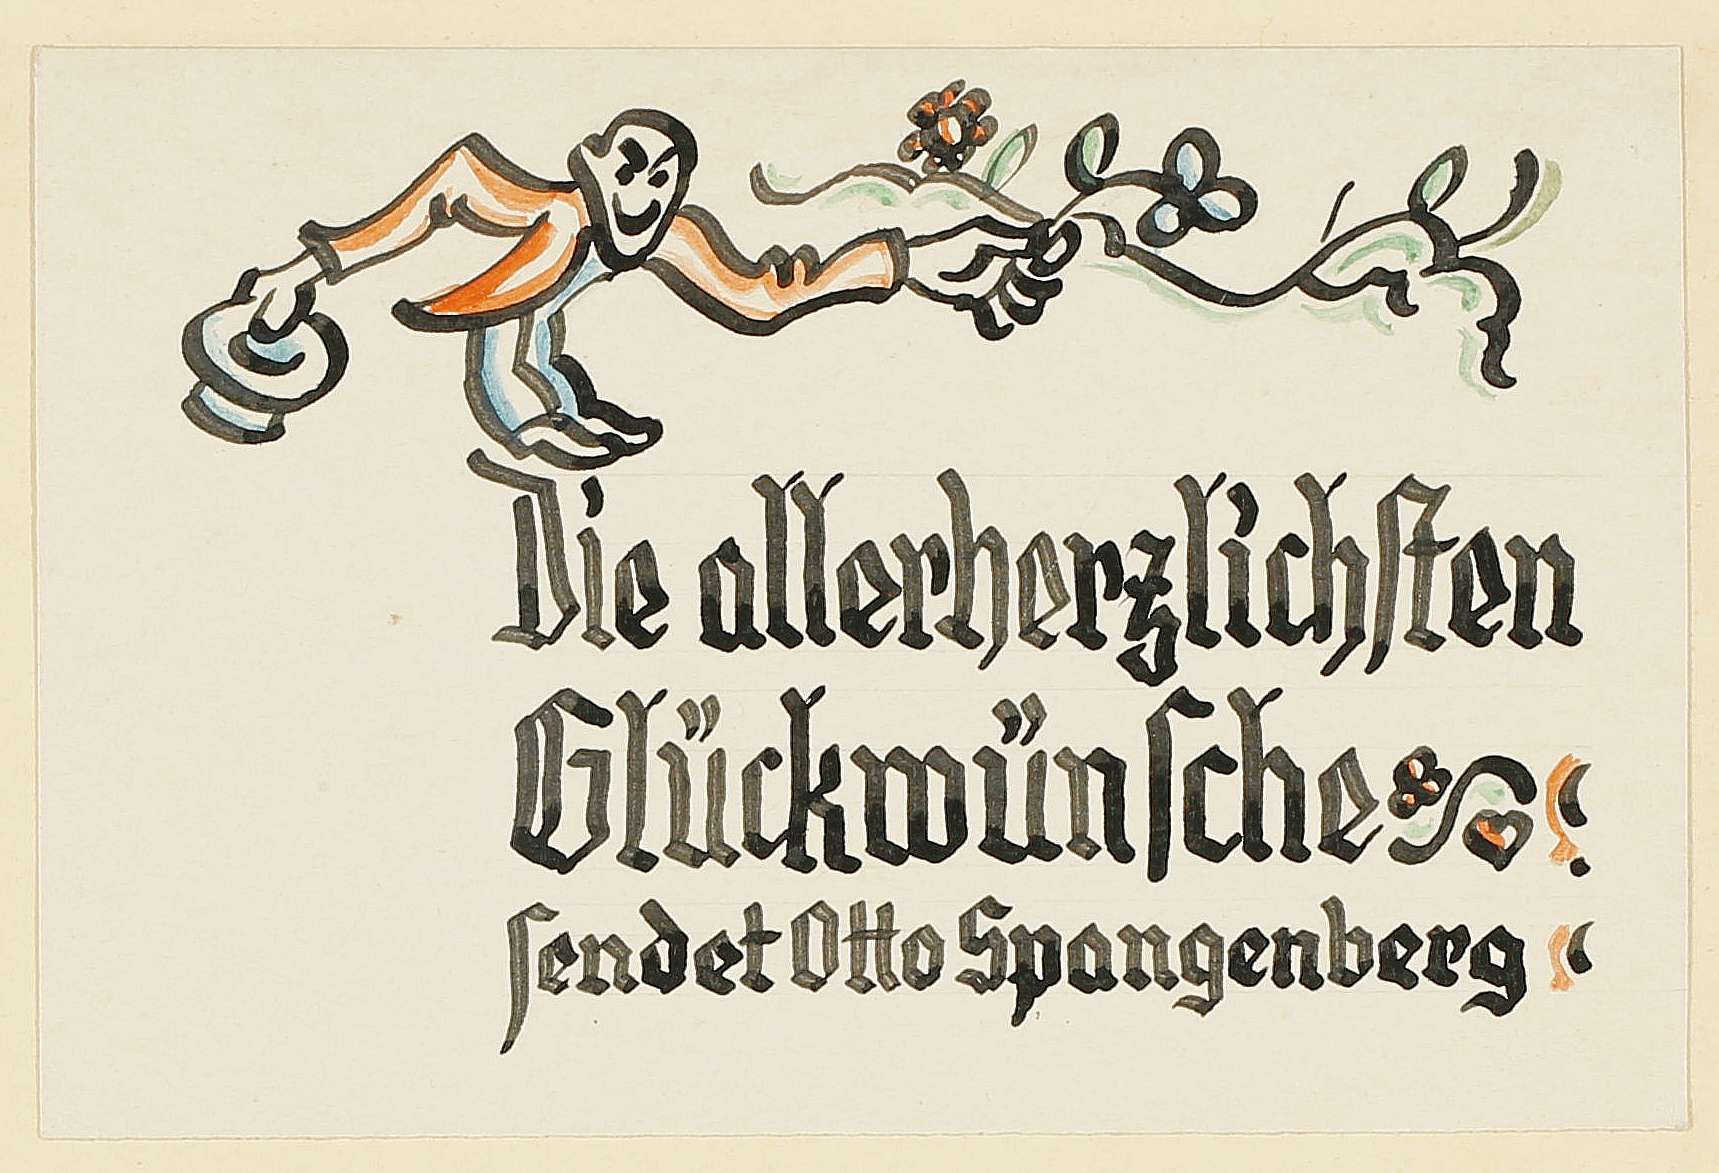 Die allerherzlichsten
Glückwünsche!
sendet Otto Spangenberg